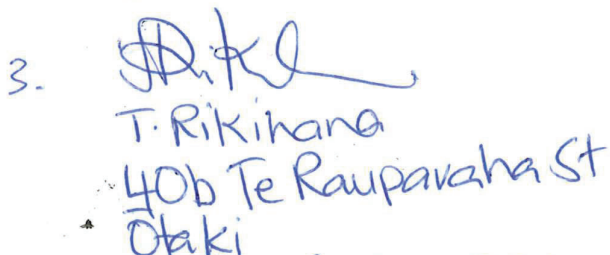 3.
T. Rikihana
40b Te Rauparaha St
Ōtaki